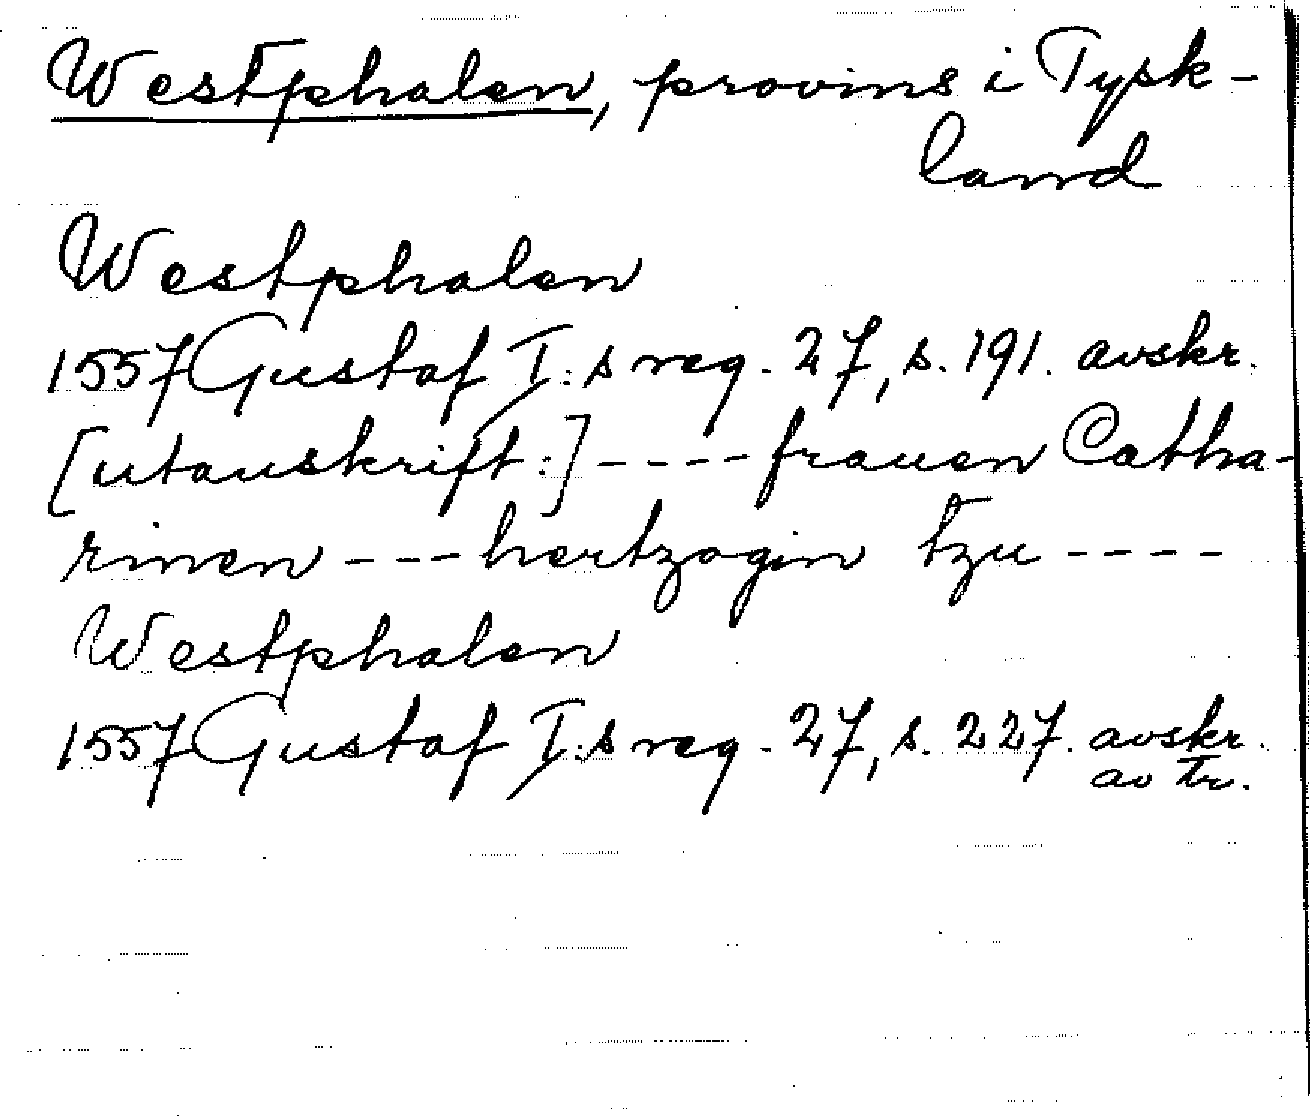 Westphalen, provins i Tysk-
land
Westphalen
1557 Gustaf I:s reg. 27, s. 191. avskr.
[utanskrift:] ---- frauen Catha-
rinen --- hertzogin tzu ----
Westphalen
1557 Gustaf I:s reg. 27, s. 227. avskr.
av tr.